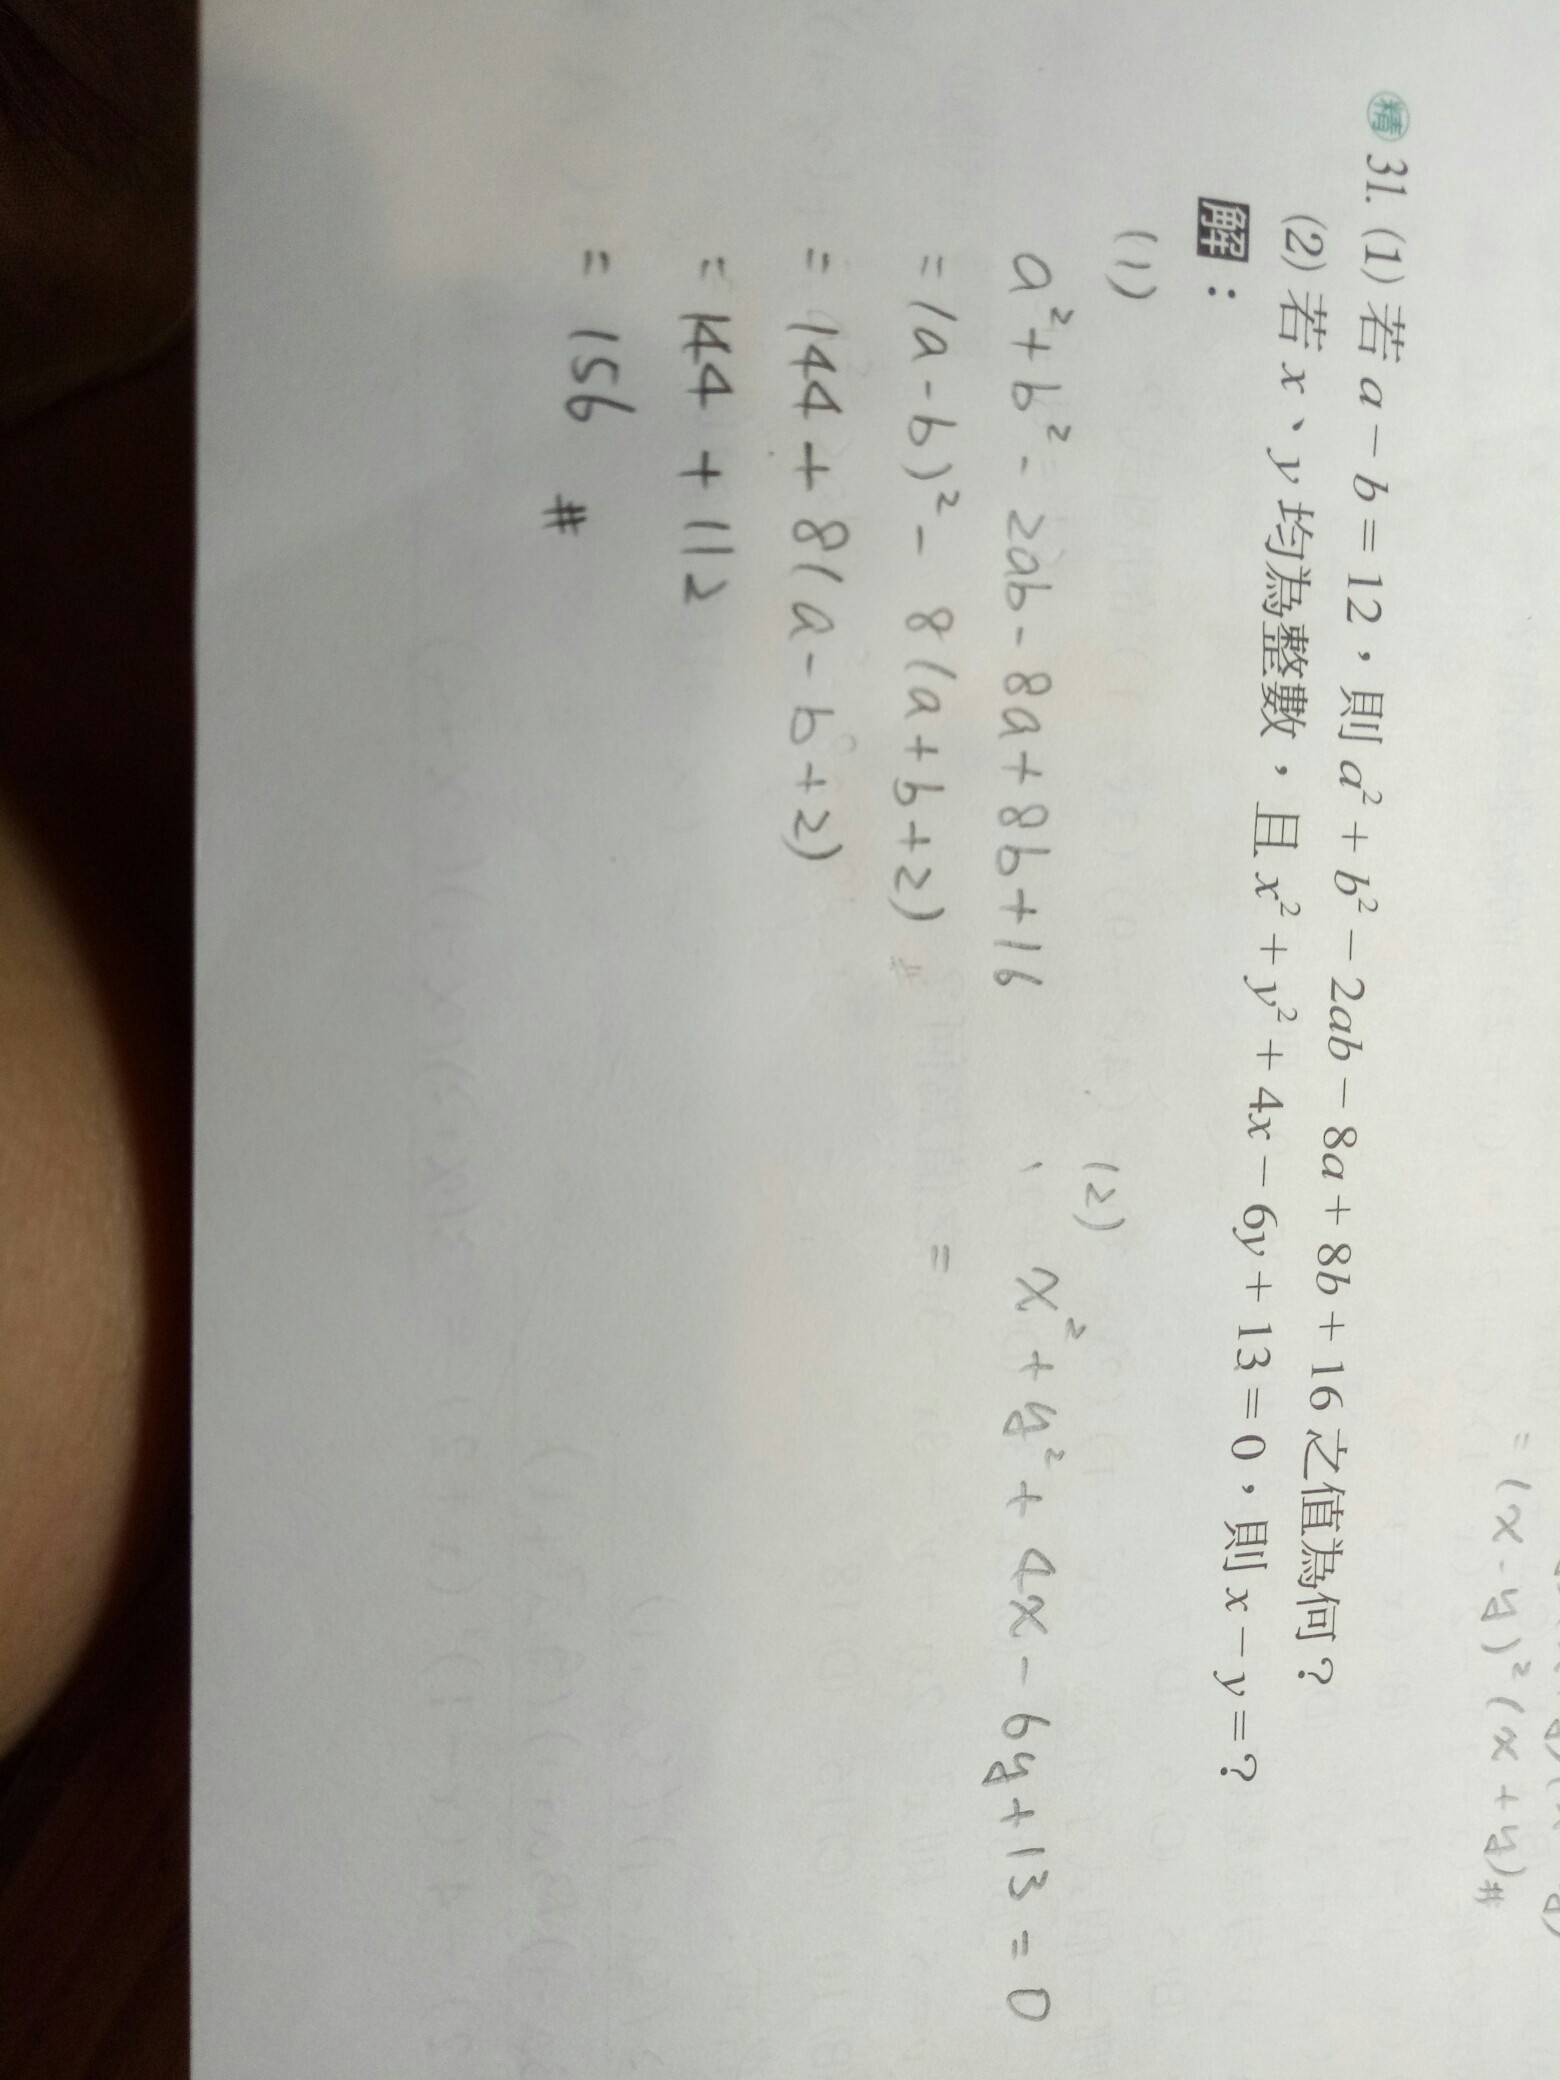 = (x-y)²(x+y)#
精 31. (1) 若 a－b＝12，則 a²＋b²－2ab－8a＋8b＋16 之值為何？
(2) 若 x、y 均為整數，且 x²＋y²＋4x－6y＋13＝0，則 x－y＝？
解：
(1)
a²+b²-2ab-8a+8b+16
=(a-b)²-8(a+b+2)
=144+8(a-b+2)
=144+112
=156 #
(2)
x²+y²+4x-6y+13=0
=